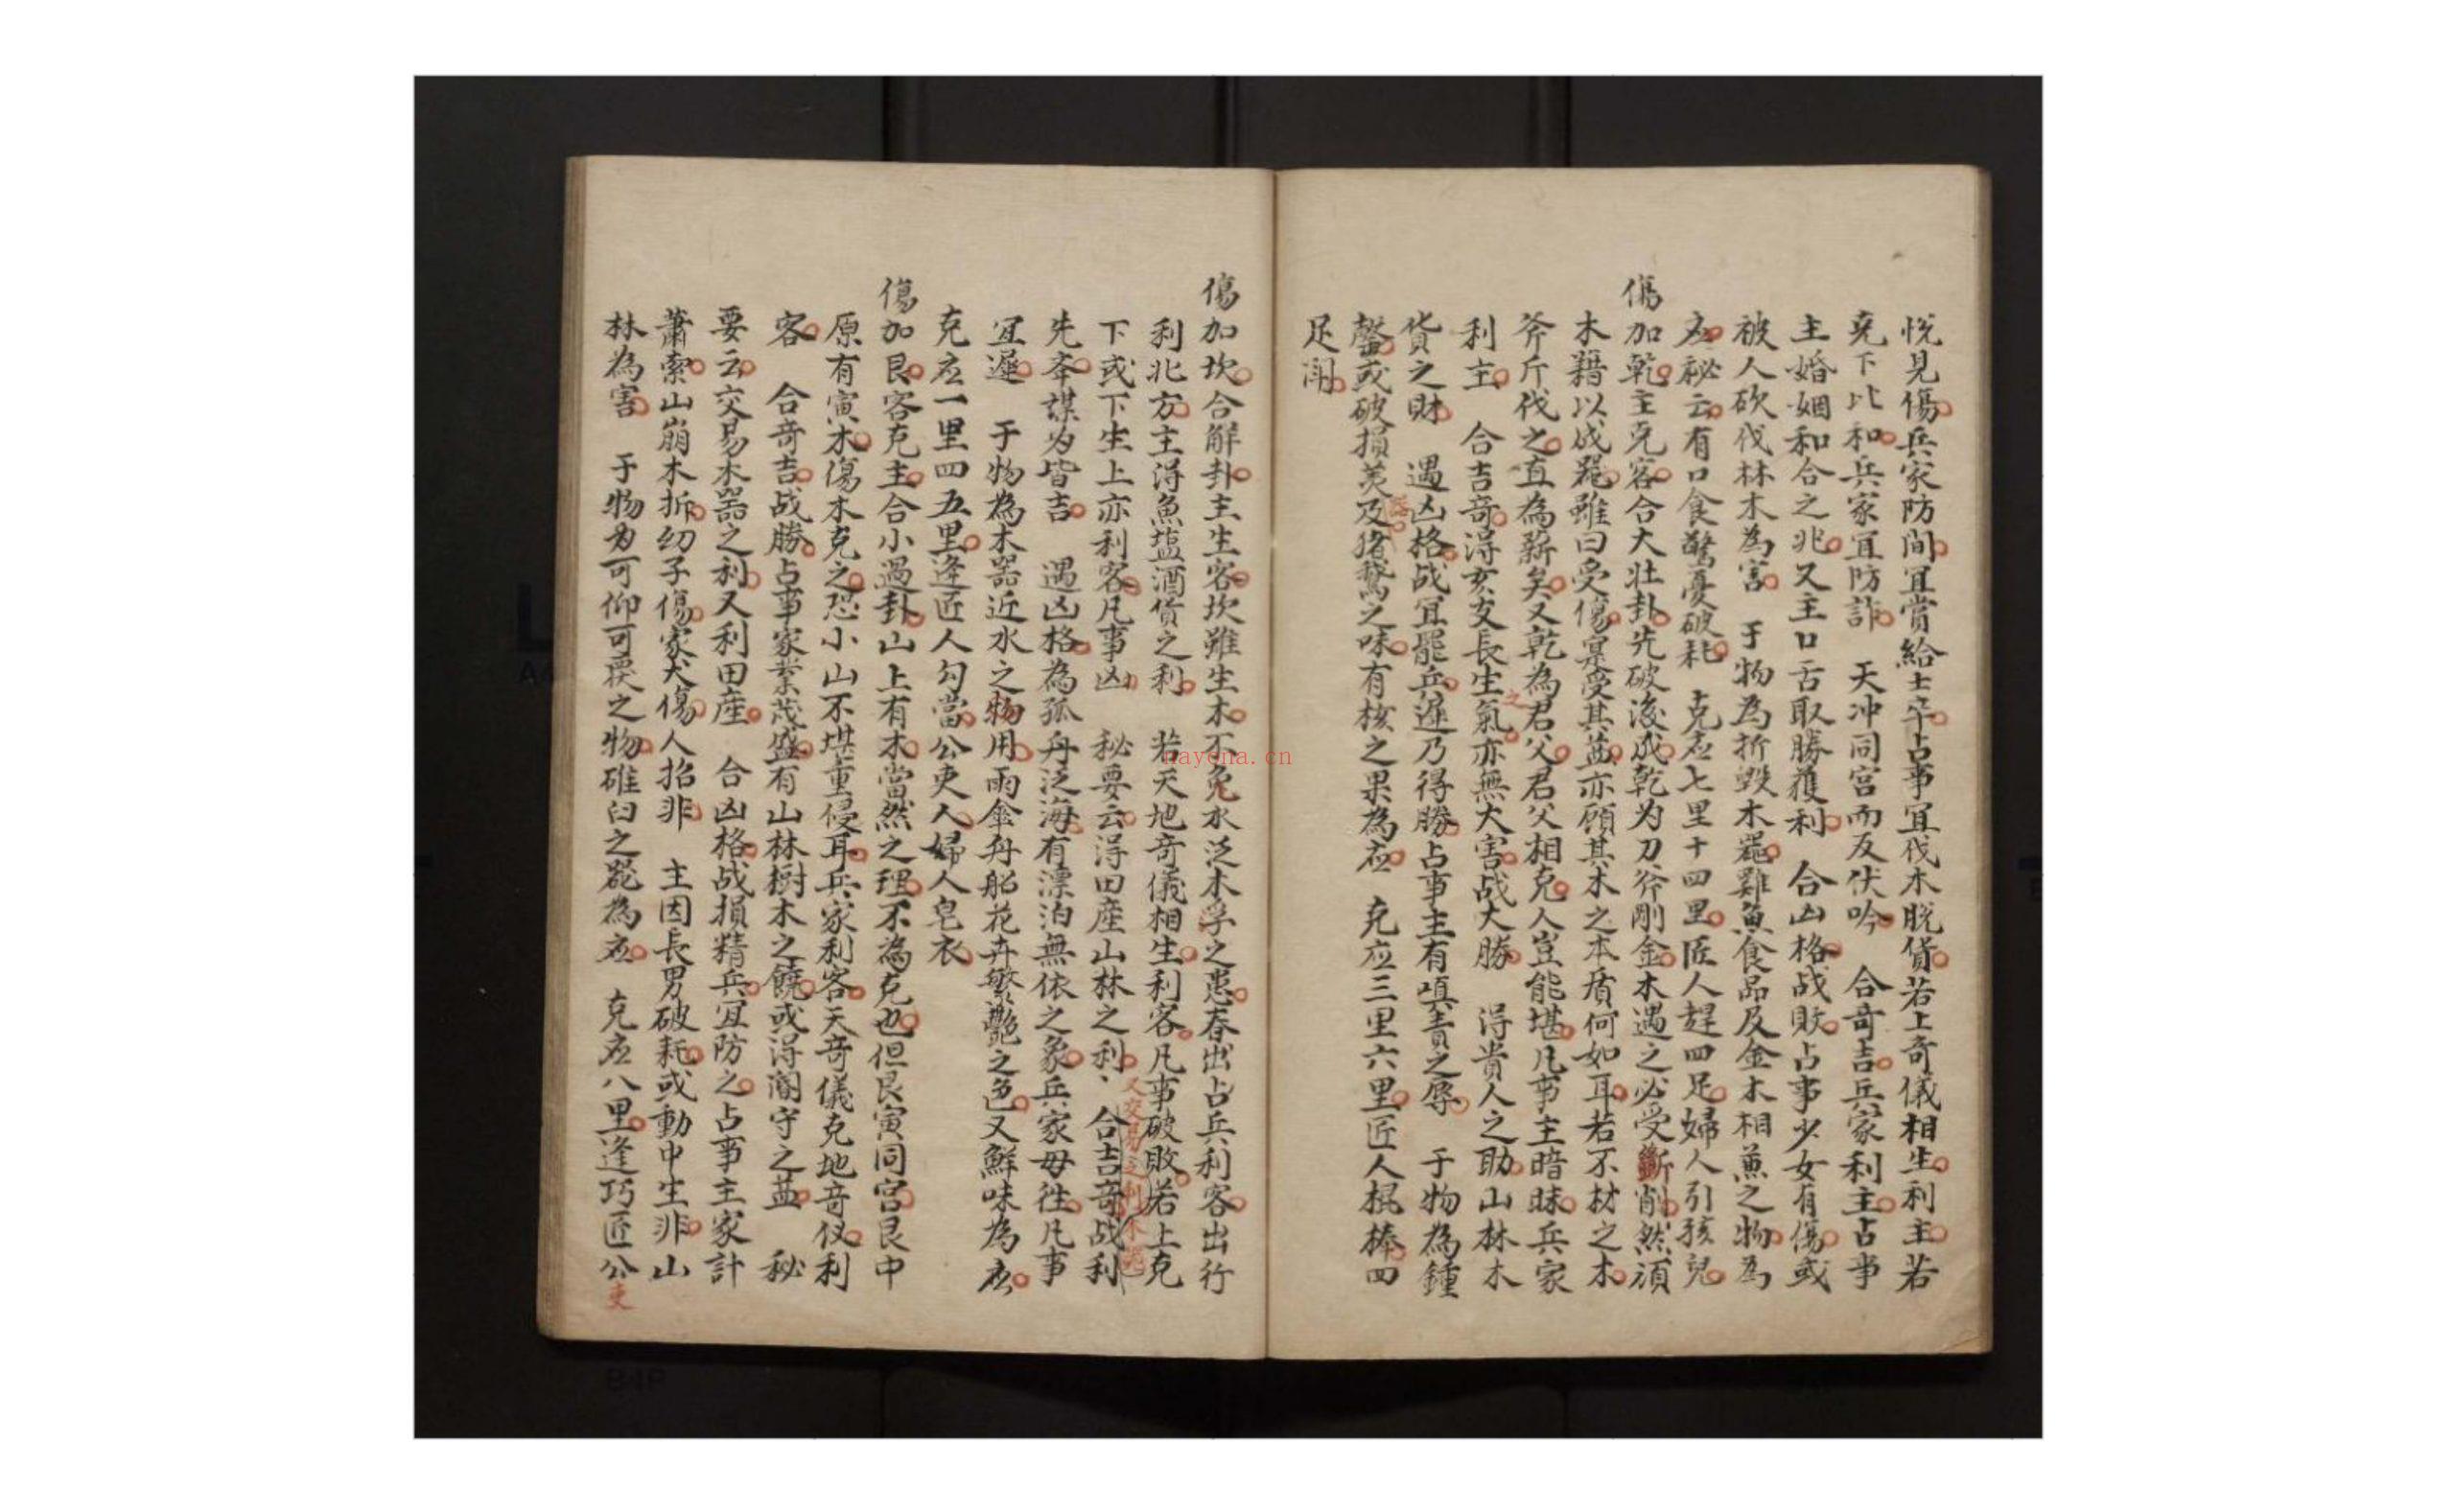 悅見傷兵家防間宜賞給士卒占事宜伐木脫貨若上奇儀相生利主若
克下比和兵家宜防詐　天冲同宮而反伏吟　合奇吉兵家利主占事
主婚姻和合之兆又主口舌取勝獲利　合凶格战敗占事少女有傷或
被人砍伐林木為害　于物為折毀木噐雞魚食品及金木相兼之物為
应秘云有口食驚憂破耗　克应七里十四里匠人趕四足婦人引孩兒
傷加乾主克客合大壮卦先破後成乾为刀斧剛金木遇之必受斷削然須
木藉以成噐雖曰受傷寔受其益亦顧其木之本质何如耳若不材之木
斧斤伐之直為薪矣又乾為君父君父相克人豈能堪凡事主暗昧兵家
利主　合吉奇得亥支長生之氣亦無大害战大勝　得貴人之助山林木
貨之財　遇凶格战宜罷兵遲乃得勝占事主有嗔責之辱　于物為鐘
磬或破損羙噐及猪鵞之味有核之果為应　克应三里六里匠人棍棒四
足鬧
傷加坎合解卦主生客坎雖生木不免水泛木浮之患春出占兵利客出行
利北方主得魚塩酒貨之利　若天地奇儀相生利客凡事破敗若上克
下或下生上亦利客凡事凶　秘要云得田產山林之利又交易之利木噐　合吉奇战利
先夲謀为皆吉　遇凶格為孤舟泛海有漂泊無依之象兵家毋徃凡事
宜遲　于物為木器近水之物用雨傘舟船花卉繁艷之色又鮮味為应
克应一里四五里逢匠人勾當公吏人婦人皂衣
傷加艮客克主合小過卦山上有木當然之理不為克也但艮寅同宮艮中
原有寅木傷木克之恐小山不堪重侵耳兵家利客天奇儀克地奇仪利
客　合奇吉战勝占事家業茂盛有山林樹木之饒或得閽守之益　秘
要云交易木器之利又利田產　合凶格战損精兵宜防之占事主家計
蕭索山崩木拆幼子傷家犬傷人招非　主因長男破耗或動中生非山
林為害　于物为可仰可覆之物碓臼之噐為应　克应八里逢巧匠公吏
nayona.cn